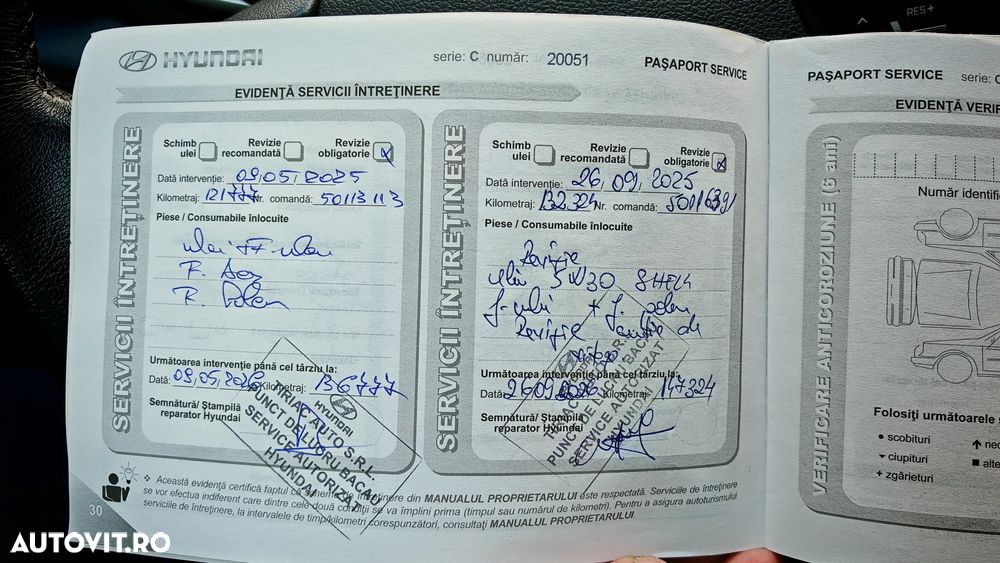 RES+
HYUNDAI
serie: C număr: 20051
PAȘAPORT SERVICE
EVIDENȚĂ SERVICII ÎNTREȚINERE
SERVICII ÎNTREȚINERE
Schimb ulei
Revizie recomandată
Revizie obligatorie
Dată intervenție: 09.05.2025
Kilometraj: 121777 Nr. comandă: 50113113
Piese / Consumabile înlocuite
ulei + F. ulei
F. Aer
F. Polen
Următoarea intervenție până cel târziu la:
Dată: 09.05.2026 Kilometraj: 136777
Semnătură/ Ștampilă
reparator Hyundai
HYUNDAI
ȚIRIAC AUTO S.R.L.
PUNCT DE LUCRU BACĂU
SERVICE AUTORIZAT
HYUNDAI
SERVICII ÎNTREȚINERE
Schimb ulei
Revizie recomandată
Revizie obligatorie
Dată intervenție: 26.09.2025
Kilometraj: 132.324 Nr. comandă: 50116391
Piese / Consumabile înlocuite
Revizie
ulei 5W30 SHELL
f. ulei + f. polen
Revizie
Următoarea intervenție până cel târziu la:
Dată: 26.09.2026 Kilometraj: 147324
Semnătură/ Ștampilă
reparator Hyundai
PUNCT DE LUCRU BACĂU
SERVICE AUTORIZAT
HYUNDAI
30
Această evidență certifică faptul că din MANUALUL PROPRIETARULUI este respectată. Serviciile de întreținere
se vor efectua indiferent care dintre cele două condiții se va împlini prima (timpul sau numărul de kilometri). Pentru a asigura autoturismului
serviciile de întreținere, la intervalele de timp/kilometri corespunzători, consultați MANUALUL PROPRIETARULUI.
PAȘAPORT SERVICE
serie: C
EVIDENȚĂ VERIF
VERIFICARE ANTICOROZIUNE (6 ani)
Număr identifi
Folosiți următoarele
• scobituri
ciupituri
+ zgârieturi
nec
alte
AUTOVIT.RO